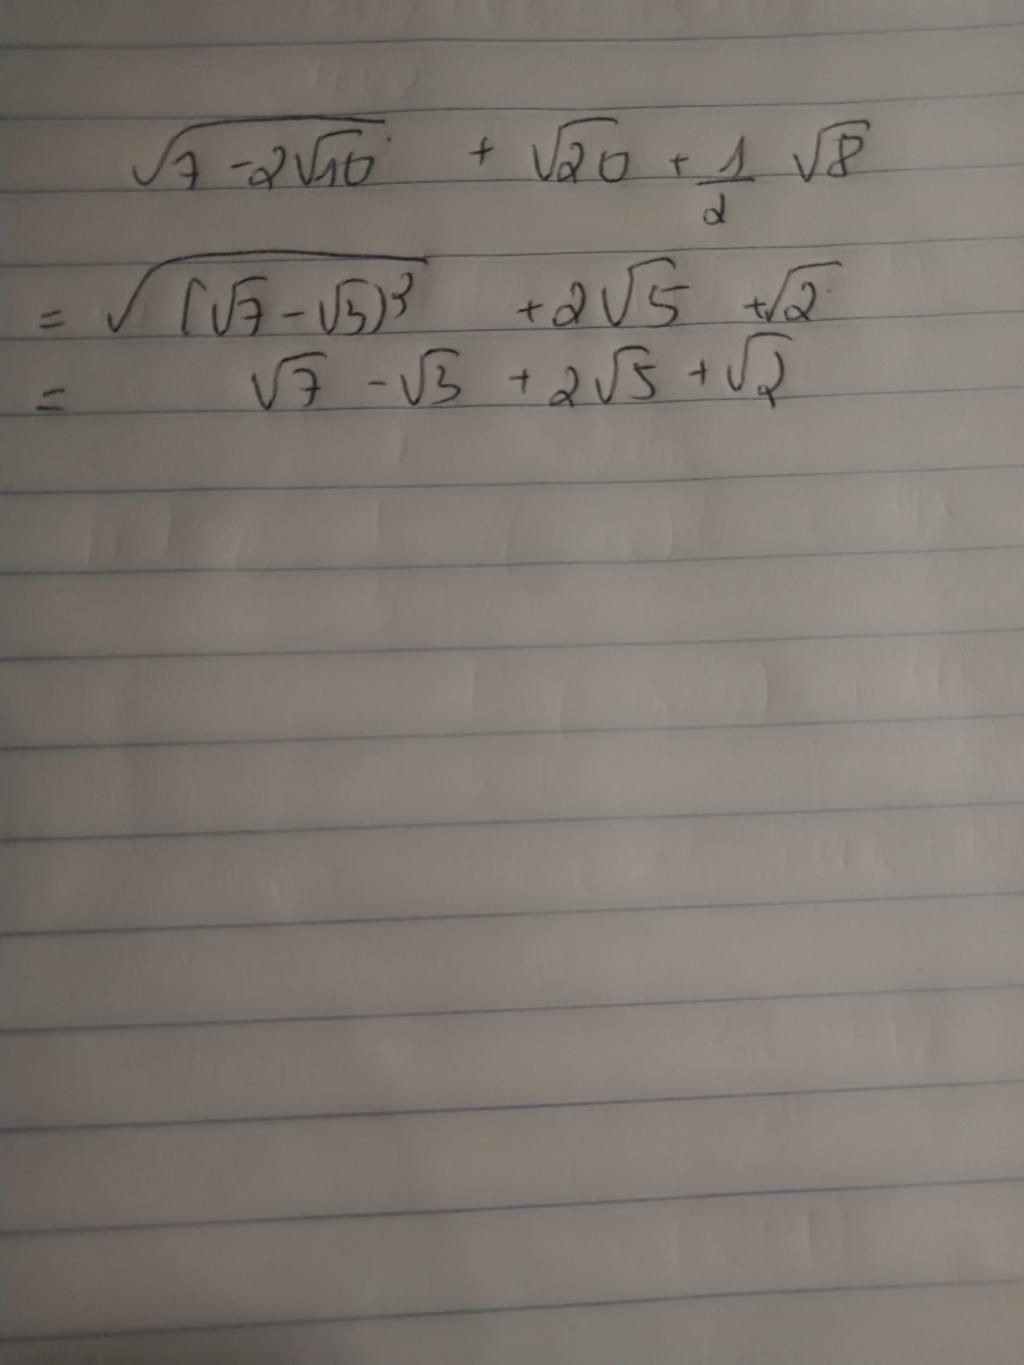 √(7 - 2√10) + √20 + 1/2 √8
= √((√7 - √3)²) + 2√5 + √2
= √7 - √3 + 2√5 + √2